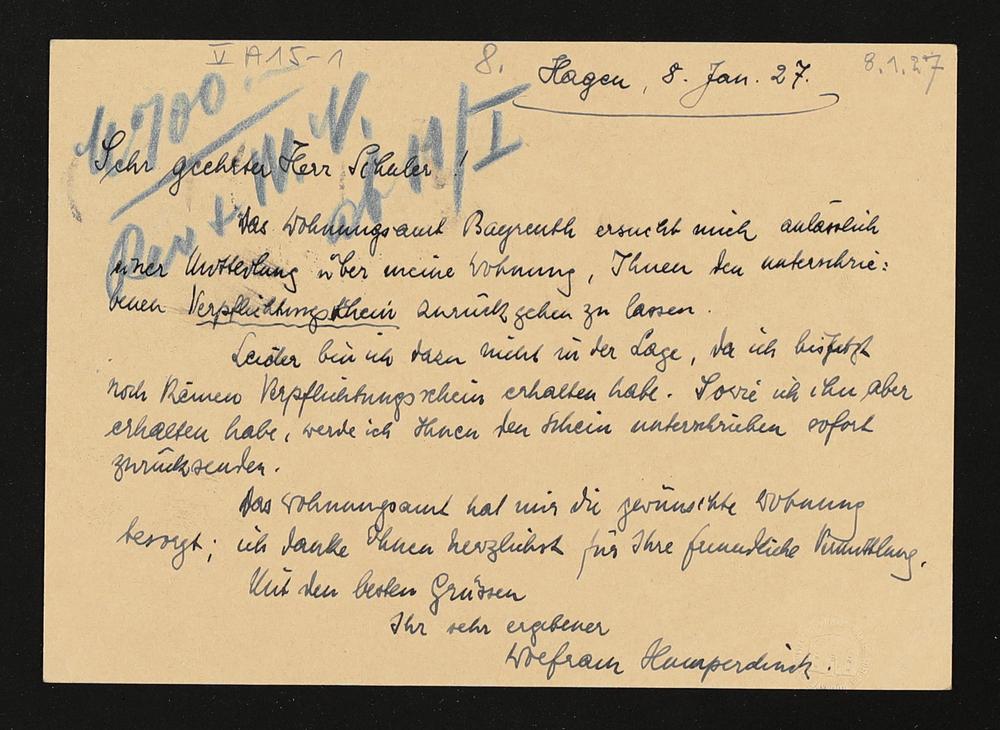 V A 15-1
8.
8.1.27
Hagen, 8. Jan. 27.
Sehr geehrter Herr Schuler!
Das Wohnungsamt Bayreuth ersucht mich anlässlich
einer Mitteilung über meine Wohnung, Ihnen den unterschrie:
benen Verpflichtungsschein zurückgehen zu lassen.
Leider bin ich dazu nicht in der Lage, da ich bisjetzt
noch keinen Verpflichtungsschein erhalten habe. Sowie ich ihn aber
erhalten habe, werde ich Ihnen den Schein unterschrieben sofort
zurücksenden.
Das Wohnungsamt hat mir die gewünschte Wohnung
besorgt; ich danke Ihnen herzlichst für Ihre freundliche Vermittlung.
Mit den besten Grüssen
Ihr sehr ergebener
Wolfram Humperdinck.